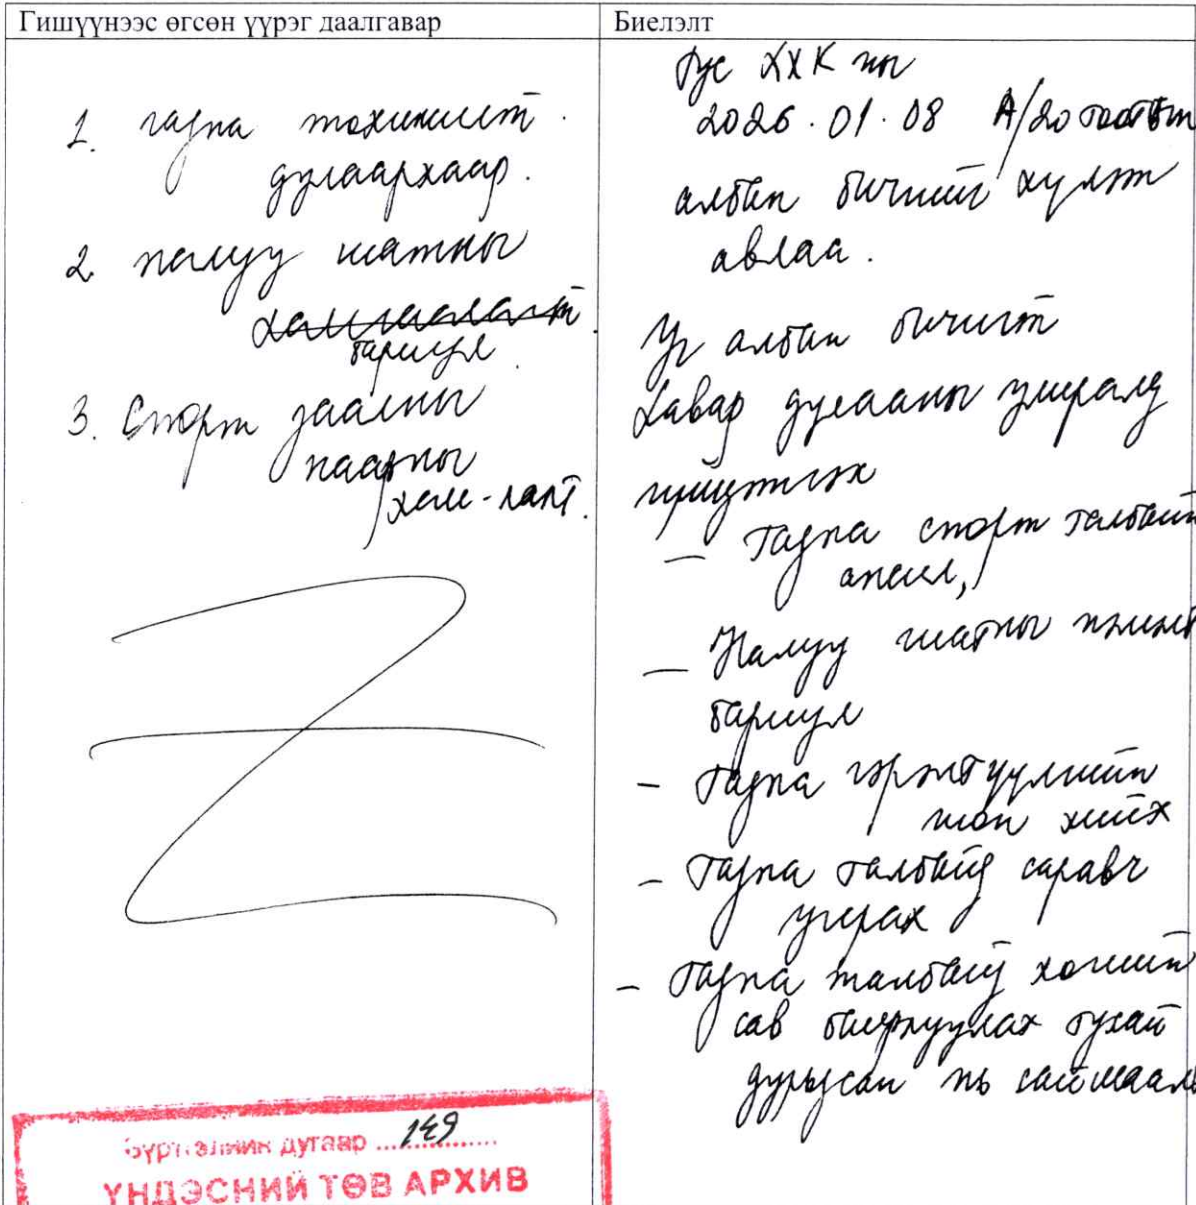 Гишүүнээс өгсөн үүрэг даалгавар
1. гадна тохижилт.
дулаархаар.
2. налуу шатны
хамгаалалт.
бариул.
3. Спорт заалны
наадны
хам-лалт.
Биелэлт
Тус ХХК ны
2026.01.08 А/20 тоотын
албан бичгийг хүлээн
авлаа.
Уг албан бичигт
Хавар дулааны улиралд
гүйцэтгэх
- Гадна спорт талбайн
ажил,
- Налуу шатны
бариул
- Гадна гэрэлтүүлгийн
шон хийх
- Гадна талбайд саравч
угсрах
- Гадна талбайд хогийн
сав байрлуулах тухай
дурьдсан нь
Бүртгэлийн дугаар ...149...
ҮНДЭСНИЙ ТӨВ АРХИВ